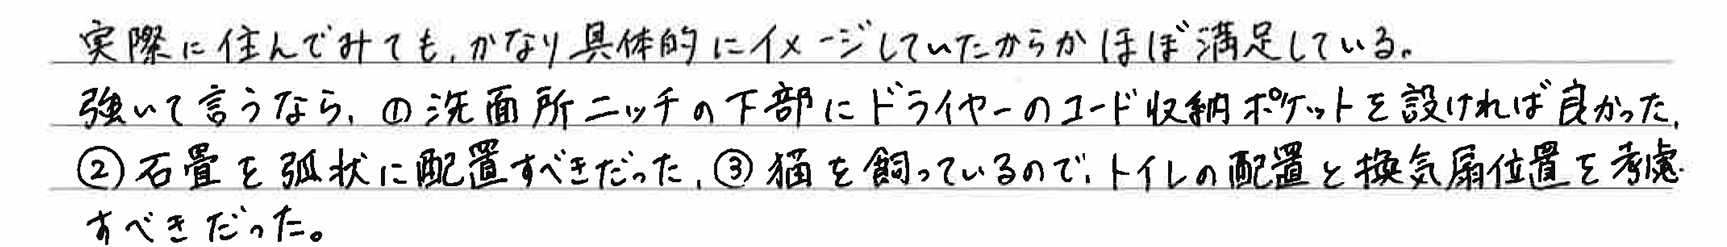 実際に住んでみても、かなり具体的にイメージしていたからかほぼ満足している。
強いて言うなら、①洗面所ニッチの下部にドライヤーのコード収納ポケットを設ければ良かった、
②石畳を弧状に配置すべきだった、③猫を飼っているので、トイレの配置と換気扇位置を考慮
すべきだった。